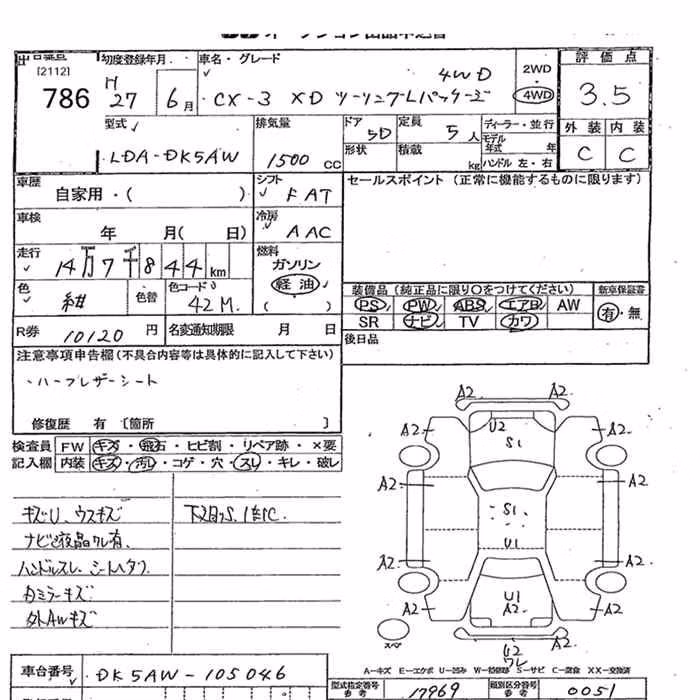 786
[2112]
初度登録年月 車名・グレード
H 27 6月 CX-3 XD ツーリングLパッケージ 4WD
2WD
4WD
評価点
3.5
外装 内装
C C
型式 排気量 ドア 定員 ディーラー・並行
LDA-DK5AW 1500cc 5D 5人
モデル年式 年
形状 積載 kg ハンドル 左・右
車歴
自家用・( )
シフト FAT
セールスポイント (正常に機能するものに限ります)
車検
年 月( 日)
冷房 AAC
走行
14万7千844km
燃料
ガソリン
軽油
( )
色 紺 色替 色コード 42M
装備品 (純正品に限り○をつけてください) 新車保証書
PS PW ABS エアB AW 有・無
SR ナビ TV カワ
R券 10120円 名変通知期限 月 日
後日品
注意事項申告欄(不具合内容等は具体的に記入して下さい)
・ハーフレザーシート
修復歴 有 〔箇所 〕
検査員記入欄
FW キズ・飛石・ヒビ割・リペア跡・×要
内装 キズ・汚レ・コゲ・穴・スレ・キレ・破レ
キズU、ウスキズ
ナビ液晶ワレ有、
ハンドルスレ、シートヘタリ
外AWキズ
A2 A2
A2 U2 A2
S1
A2 A2
S1
U1
A2 A2
U1
A2 A2 A2
A2 A2
U2
ワレ
スペア
A‥キズ E‥エクボ U‥凹み W‥補修跡 S‥サビ C‥腐食 XX‥交換済
車台番号 DK5AW-105046
型式指定番号 参考 17969 類別区分番号 参考 0051